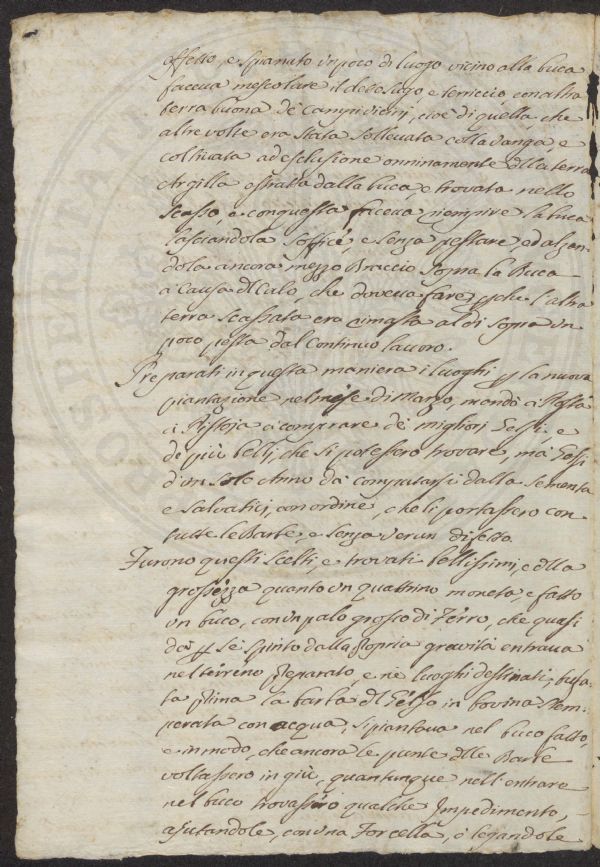 effetto, e spianato un poco di luogo vicino alla buca
faceva mescolare il detto sugo e terriccio, con altra
terra buona de Campi vicini, cioè di quella, che
altre volte era stata sollevata colla vanga, e
coltivata ad esclusione onninamente della terra
Argilla estratta dalla buca, e trovata nello
scasso, e con questa faceva riempire la buca
lasciandola soffice, e senza pestare, ed alzan=
dola ancora mezzo Braccio sopra la Buca
a Causa del Calo, che doveva fare, perche l'altra
terra scassata era rimasta al di sopra un
poco pesta dal Continuo lavoro.
Preparati in questa maniera i luoghi per la nuova
piantazione nel mese di Marzo, mandò a
a Pistoja a comprare de migliori Gelsi, e
de più belli, che si potessero trovare, ma Gelsi
d'un solo Anno da computarsi dalla sementa
e salvatici, con ordine, che li portassero con
tutte le Barbe, e senza verun difetto.
Furono questi scelti, e trovati bellissimi, e della
grossezza quanto un quattrino moneta, e fatto
un buco, con un palo grosso di Ferro, che quasi
da per sè spinto dalla propria gravità entrava
nel terreno preparato, e ne luoghi destinati,
ta prima la barba del Gelso in bovina stem=
perata con acqua, si piantava nel buco fatto,
e in modo, che ancora le punte delle Barbe
voltassero in giù, quantunque nell'entrare
nel buco trovassero qualche Impedimento,
ajutandole, con una Forcella, o legandole